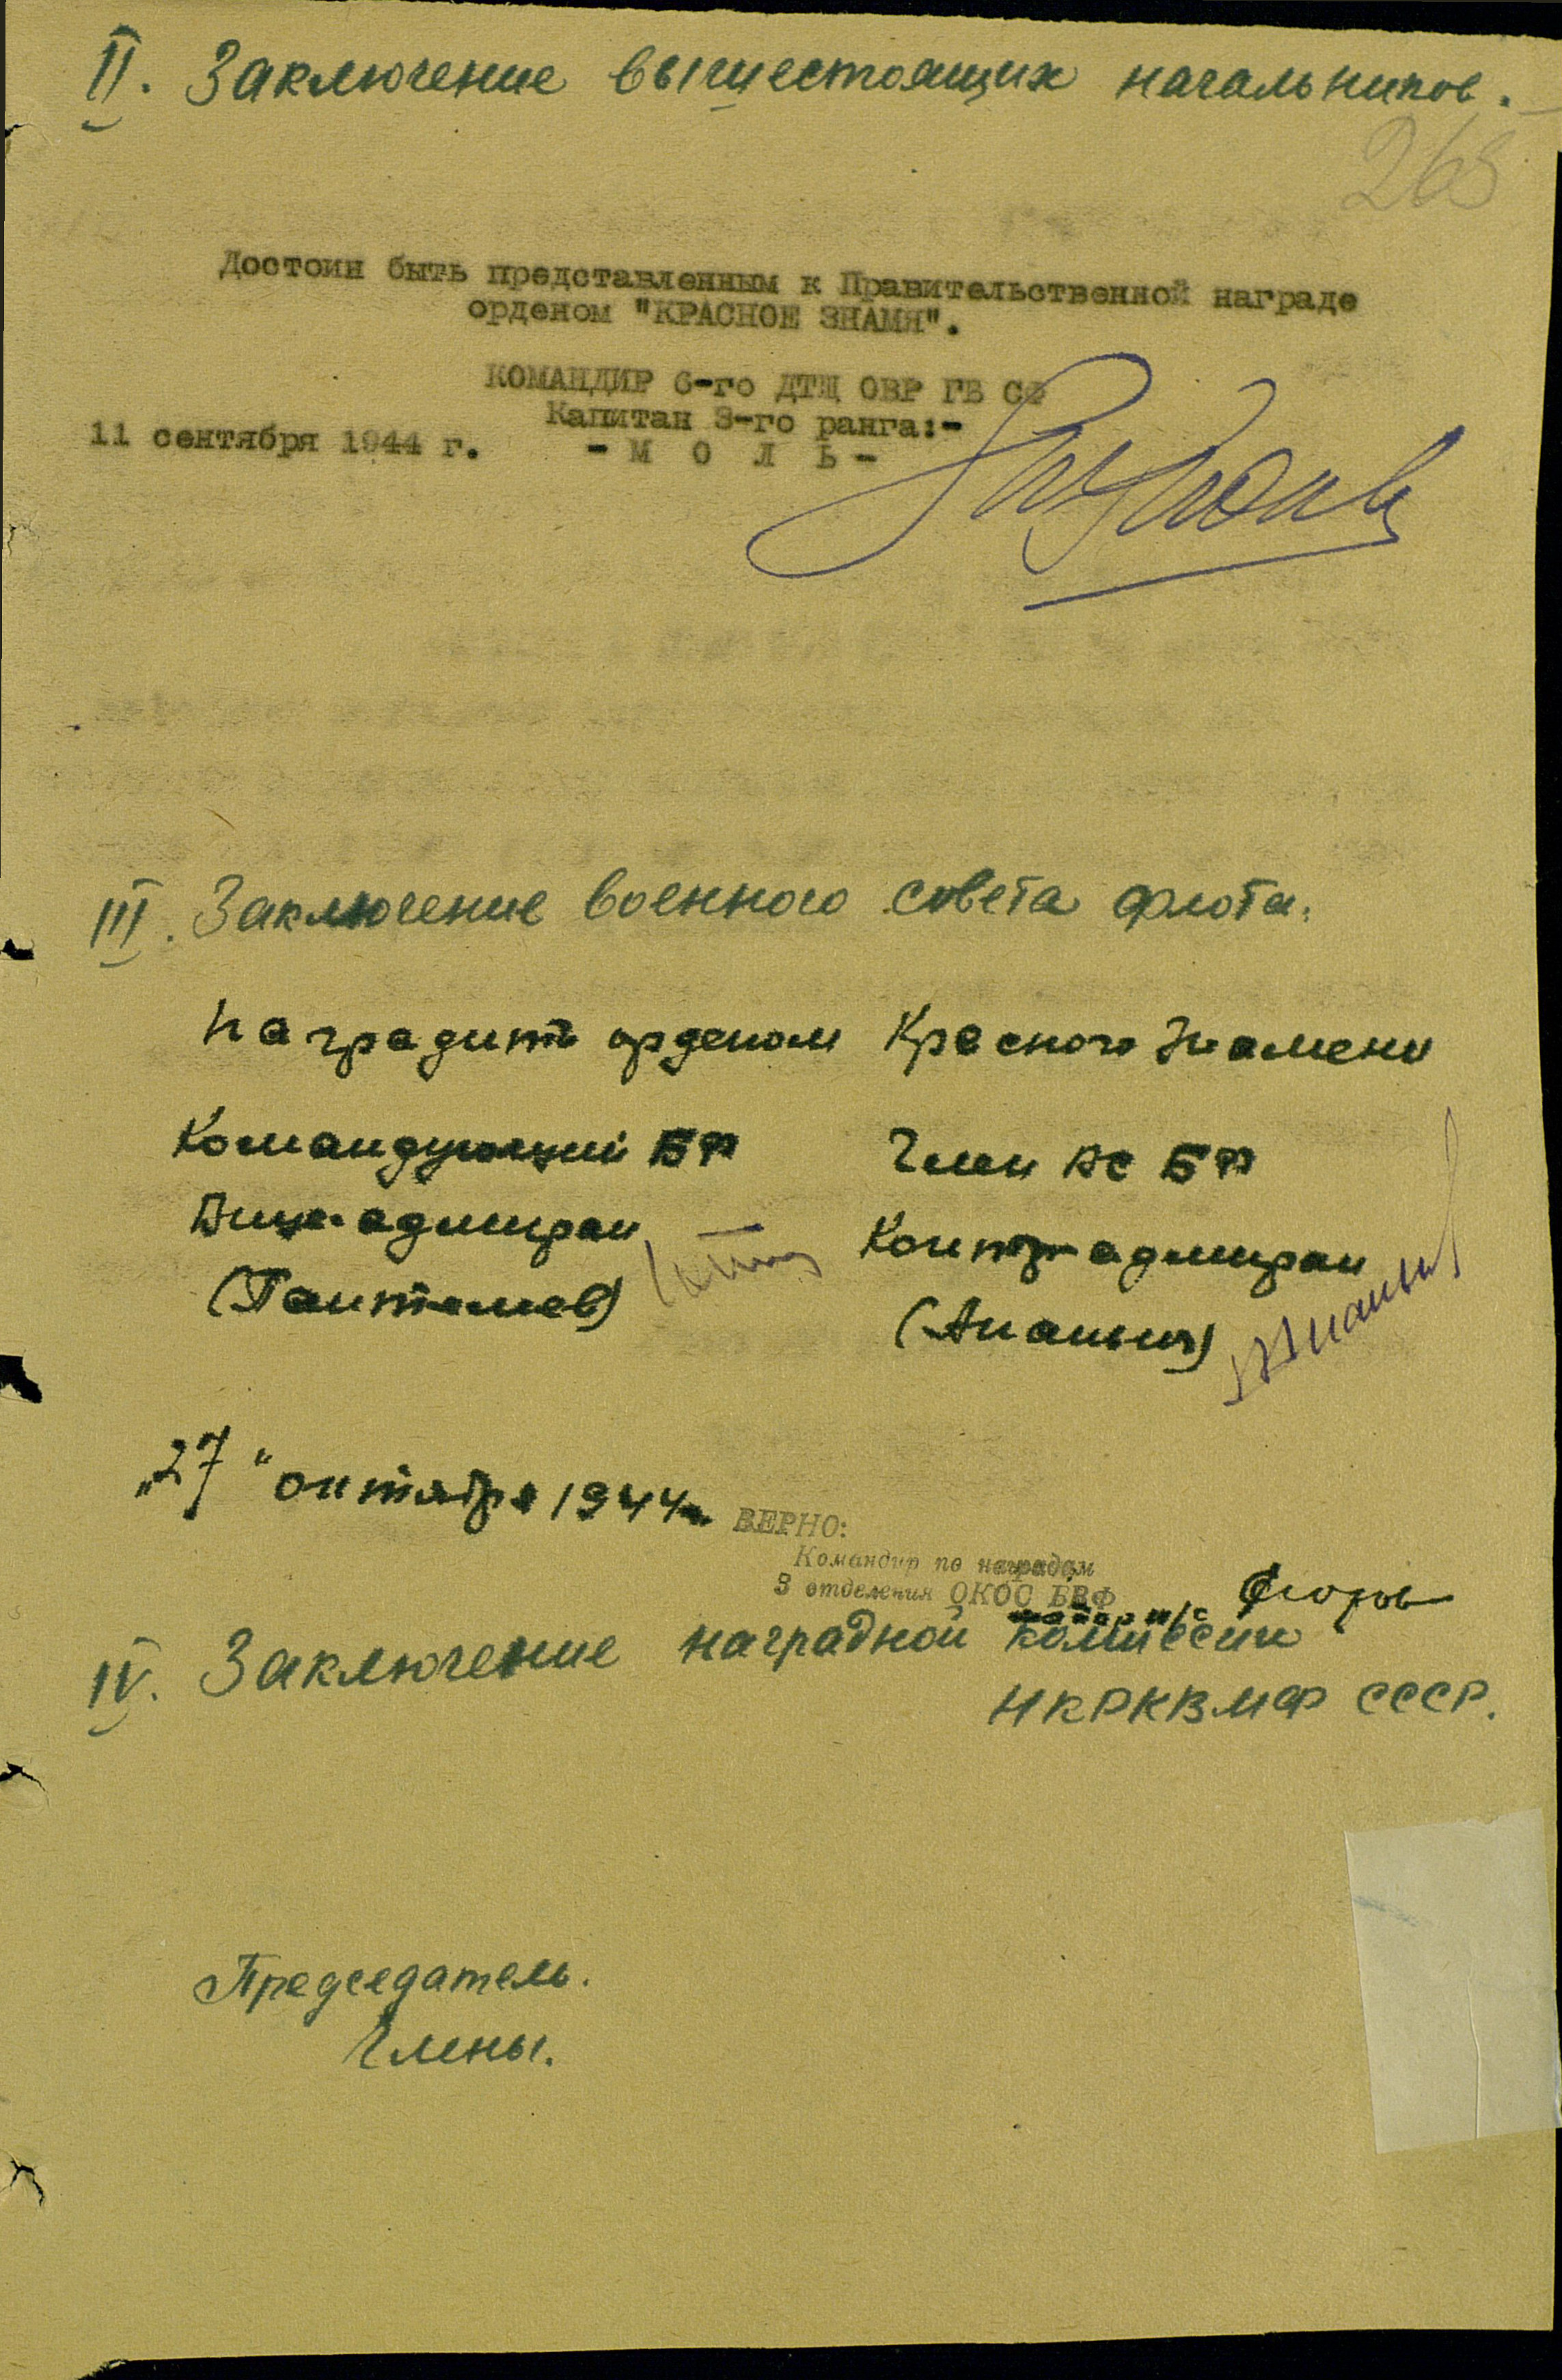 II. Заключение вышестоящих начальников.
268
Достоин быть представленным к Правительственной награде
орденом "КРАСНОЕ ЗНАМЯ".
КОМАНДИР 6-го ДТЩ ОВР ГБ СФ
Капитан 3-го ранга:-
11 сентября 1944 г. - М О Л Ь -
III. Заключение военного совета флота.
Наградить орденом Красного Знамени
Командующий БФ Член ВС БФ
Вице-адмирал Контр-адмирал
(Пантелеев) (Ананьич)
"27" октября 1944 г.
ВЕРНО:
Командир по наградам
3 отделения ОКОС БВФ
IV. Заключение наградной комиссии
НКРКВМФ СССР.
Председатель.
Члены.